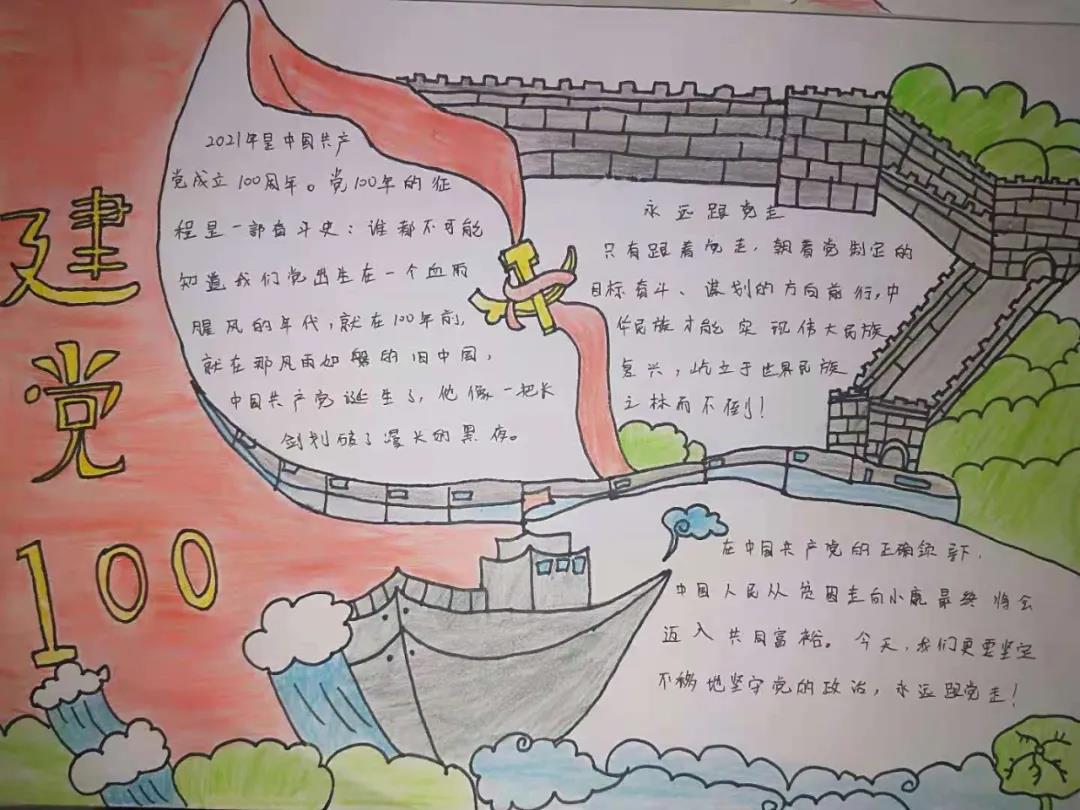 建党100
2021年是中国共产
党成立100周年。党100年的征
程是一部奋斗史：谁都不可能
知道我们党出生在一个血雨
腥风的年代，就在100年前，
就在那风雨如磐的旧中国，
中国共产党诞生了，他像一把长
剑划破了漫长的黑夜。
永远跟党走
只有跟着党走，朝着党制定的
目标奋斗、谋划的方向前行，中
华民族才能实现伟大民族
复兴，屹立于世界民族
之林而不倒！
在中国共产党的正确领导下，
中国人民从贫困走向小康最终将会
迈入共同富裕。今天，我们更要坚定
不移地坚守党的政治，永远跟党走！